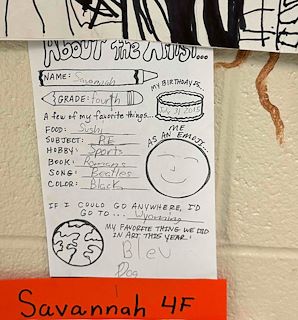 About the Artist...
NAME: Savannah
MY BIRTHDAY IS...
GRADE: fourth
A few of my favorite things...
ME
AS AN EMOJI...
FOOD: Sushi
SUBJECT: P.E
HOBBY: Sports
BOOK: Romans
SONG: Beatles
COLOR: Black
IF I COULD GO ANYWHERE, I'D
GO TO... Wyoming
MY FAVORITE THING WE DID
IN ART THIS YEAR:
Blev
Dog
Savannah 4F